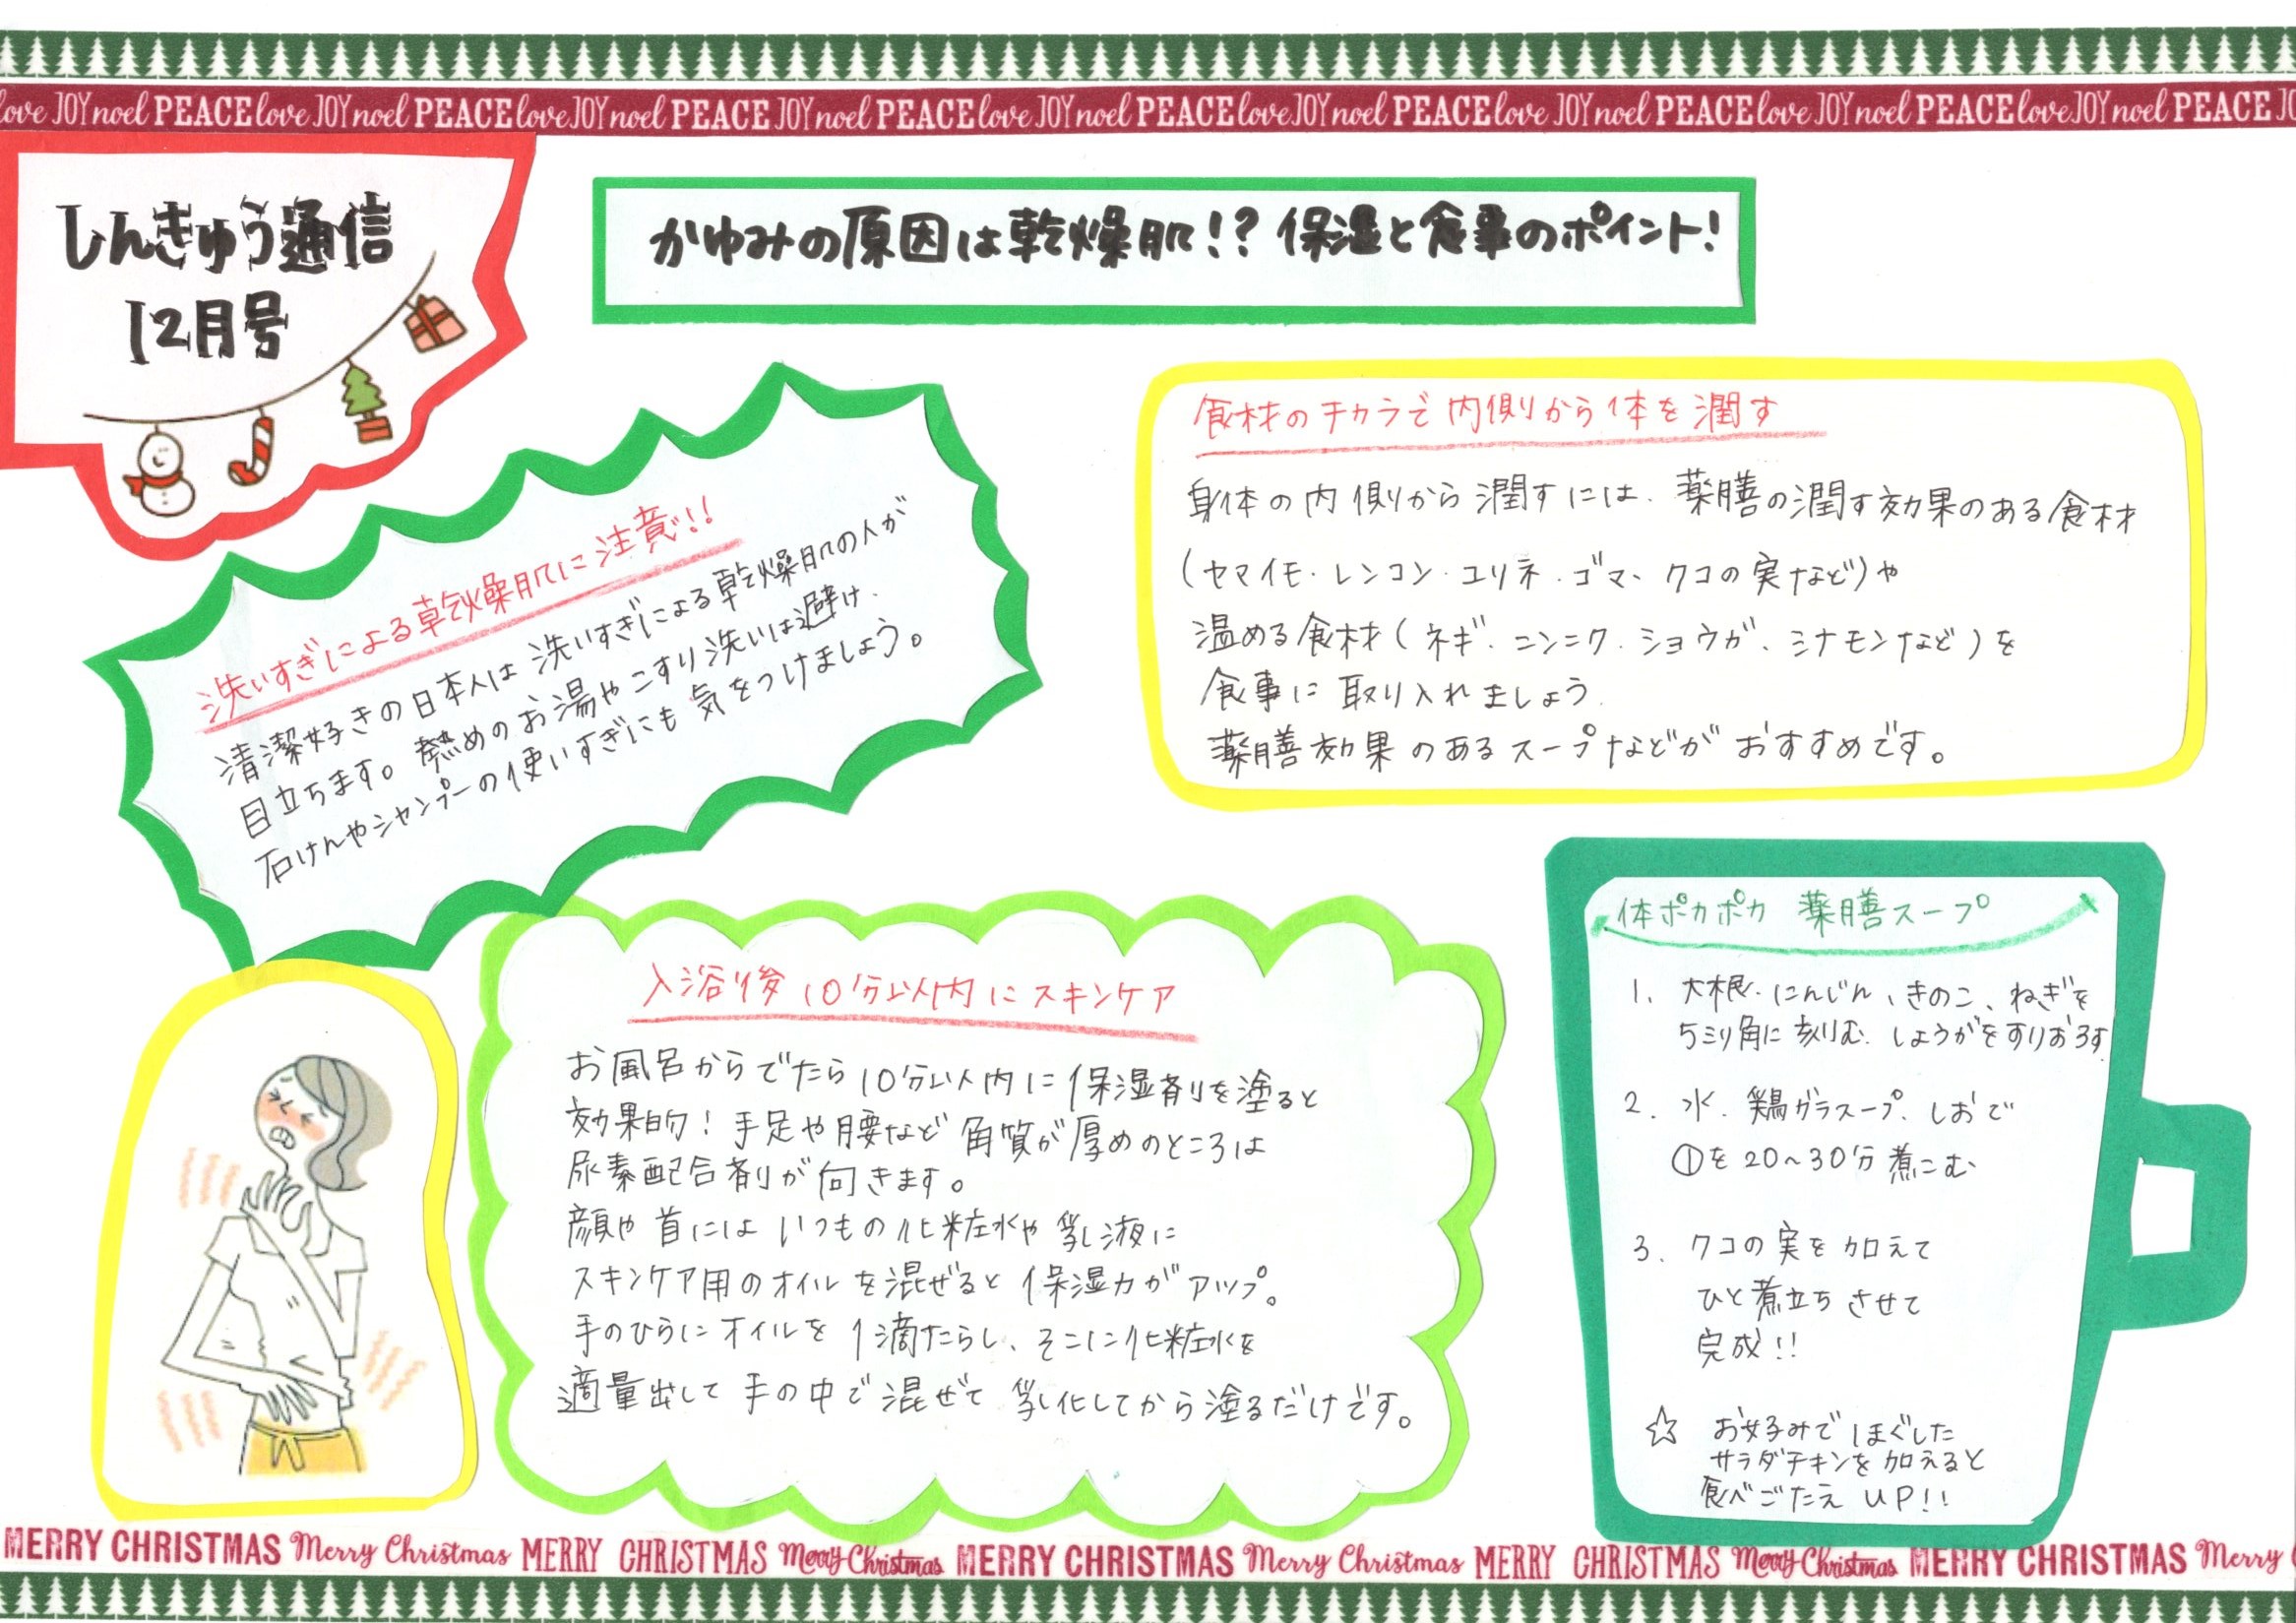 love JOY noel PEACE love JOY noel PEACE love JOY noel PEACE JOY noel PEACE love JOY noel PEACE love JOY noel PEACE JOY noel PEACE love JOY noel PEACE love JOY noel PEACE
しんきゅう通信
12月号
かゆみの原因は乾燥肌!? 保湿と食事のポイント!
洗いすぎによる乾燥肌に注意!!
清潔好きの日本人は 洗いすぎによる乾燥肌の人が
目立ちます。熱めのお湯やこすり洗いは避け、
石けんやシャンプーの使いすぎにも 気をつけましょう。
食材のチカラで内側から体を潤す
身体の内側から潤すには、薬膳の潤す効果のある食材
(ヤマイモ・レンコン・ユリネ・ゴマ、クコの実など)や
温める食材(ネギ、ニンニク、ショウガ、シナモンなど)を
食事に取り入れましょう.
薬膳効果のあるスープなどが おすすめです。
入浴後10分以内にスキンケア
お風呂からでたら10分以内に保湿剤を塗ると
効果的!手足や腰など 角質が厚めのところは
尿素配合剤が向きます。
顔や首には いつもの化粧水や乳液に
スキンケア用のオイルを混ぜると 保湿力がアップ。
手のひらにオイルを 1滴たらし、そこに化粧水を
適量出して 手の中で混ぜて 乳化してから塗るだけです。
体ポカポカ 薬膳スープ
1. 大根、にんじん、きのこ、ねぎを
5ミリ角に刻む. しょうがをすりおろす
2. 水、鶏ガラスープ、しおで
①を20~30分煮こむ
3. クコの実を加えて
ひと煮立ちさせて
完成!!
☆ お好みでほぐした
サラダチキンを加えると
食べごたえ UP!!
MERRY CHRISTMAS Merry Christmas MERRY CHRISTMAS Merry Christmas MERRY CHRISTMAS Merry Christmas MERRY CHRISTMAS Merry Christmas MERRY CHRISTMAS Merry